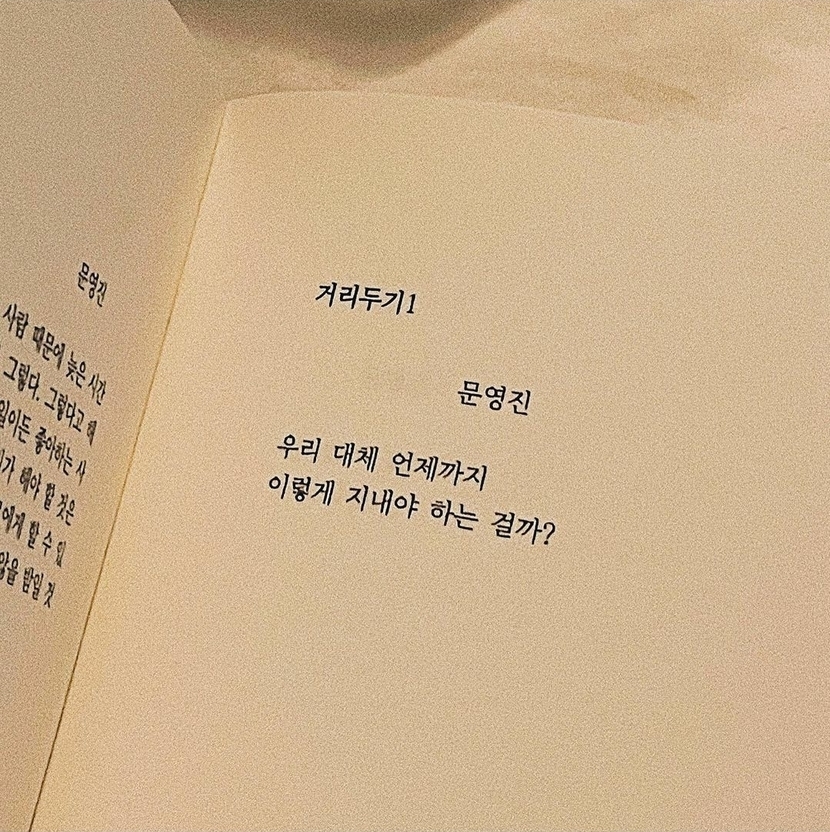 문영진
사람 때문에 늦은 시간
그렇다. 그렇다고 해
일이든 좋아하는 사
가 해야 할 것은
에게 할 수 있
않을 밤일 것
거리두기1
문영진
우리 대체 언제까지
이렇게 지내야 하는 걸까?